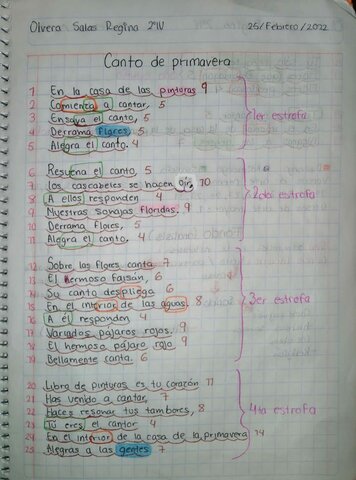 Olvera Salas Regina 2°IV 25/Febrero/2022
Canto de primavera
1 En la casa de las pinturas 9
2 Comienza a cantar, 5
3 Ensaya el canto, 5
4 Derrama flores, 5
5 Alegra el canto. 4
1er estrofa
6 Resuena el canto, 5
7 los cascabeles se hacen oír, 10
8 A ellos responden 4
9 Nuestras sonajas floridas. 9
10 Derrama flores, 5
11 Alegra el canto. 4
2da estrofa
12 Sobre las flores canta 7
13 El hermoso faisán, 6
14 Su canto despliega 6
15 En el interior de las aguas. 8
16 A él responden 4
17 Variados pájaros rojos. 9
18 El hermoso pájaro rojo 9
19 Bellamente canta. 6
3er estrofa
20 Libro de pinturas es tu corazón 11
21 Has venido a cantar, 7
22 Haces resonar tus tambores, 8
23 Tú eres el cantor 4
24 En el interior de la casa de la primavera 14
25 Alegras a las gentes 7
4ta estrofa